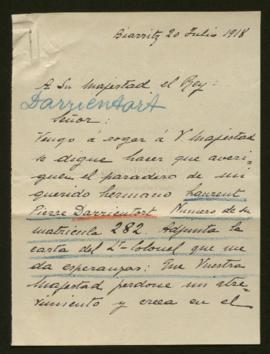 Biarritz 20 Julio 1918
A Su Majestad el Rey:
Darrientort
Señor:
Vengo á rogar á V Majestad
se digne hacer que averi-
guen el paradero de mi
querido hermano Laurent
Pierre Darrientort Numero de su
matricula 282. Adjunta la
carta del Lt Colonel que me
da esperanzas: Que Vuestra
Majestad perdone mi atre-
vimiento y crea en el